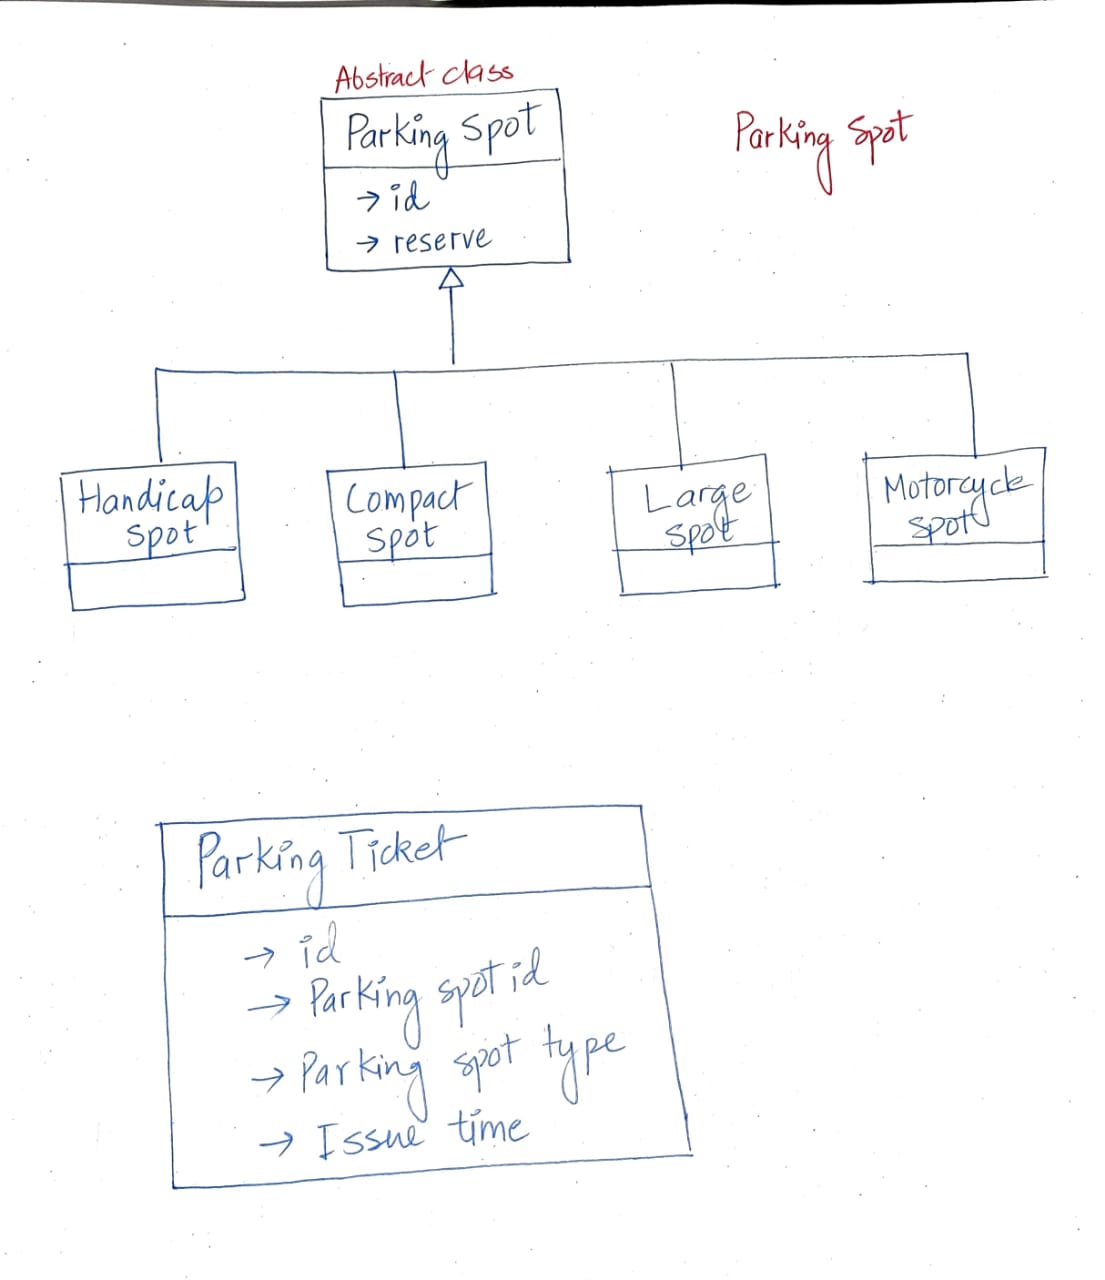 Abstract class
Parking Spot
→ id
→ reserve
Parking Spot
Handicap
Spot
Compact
Spot
Large
Spot
Motorcycle
Spot
Parking Ticket
→ id
→ Parking spot id
→ Parking spot type
→ Issue time